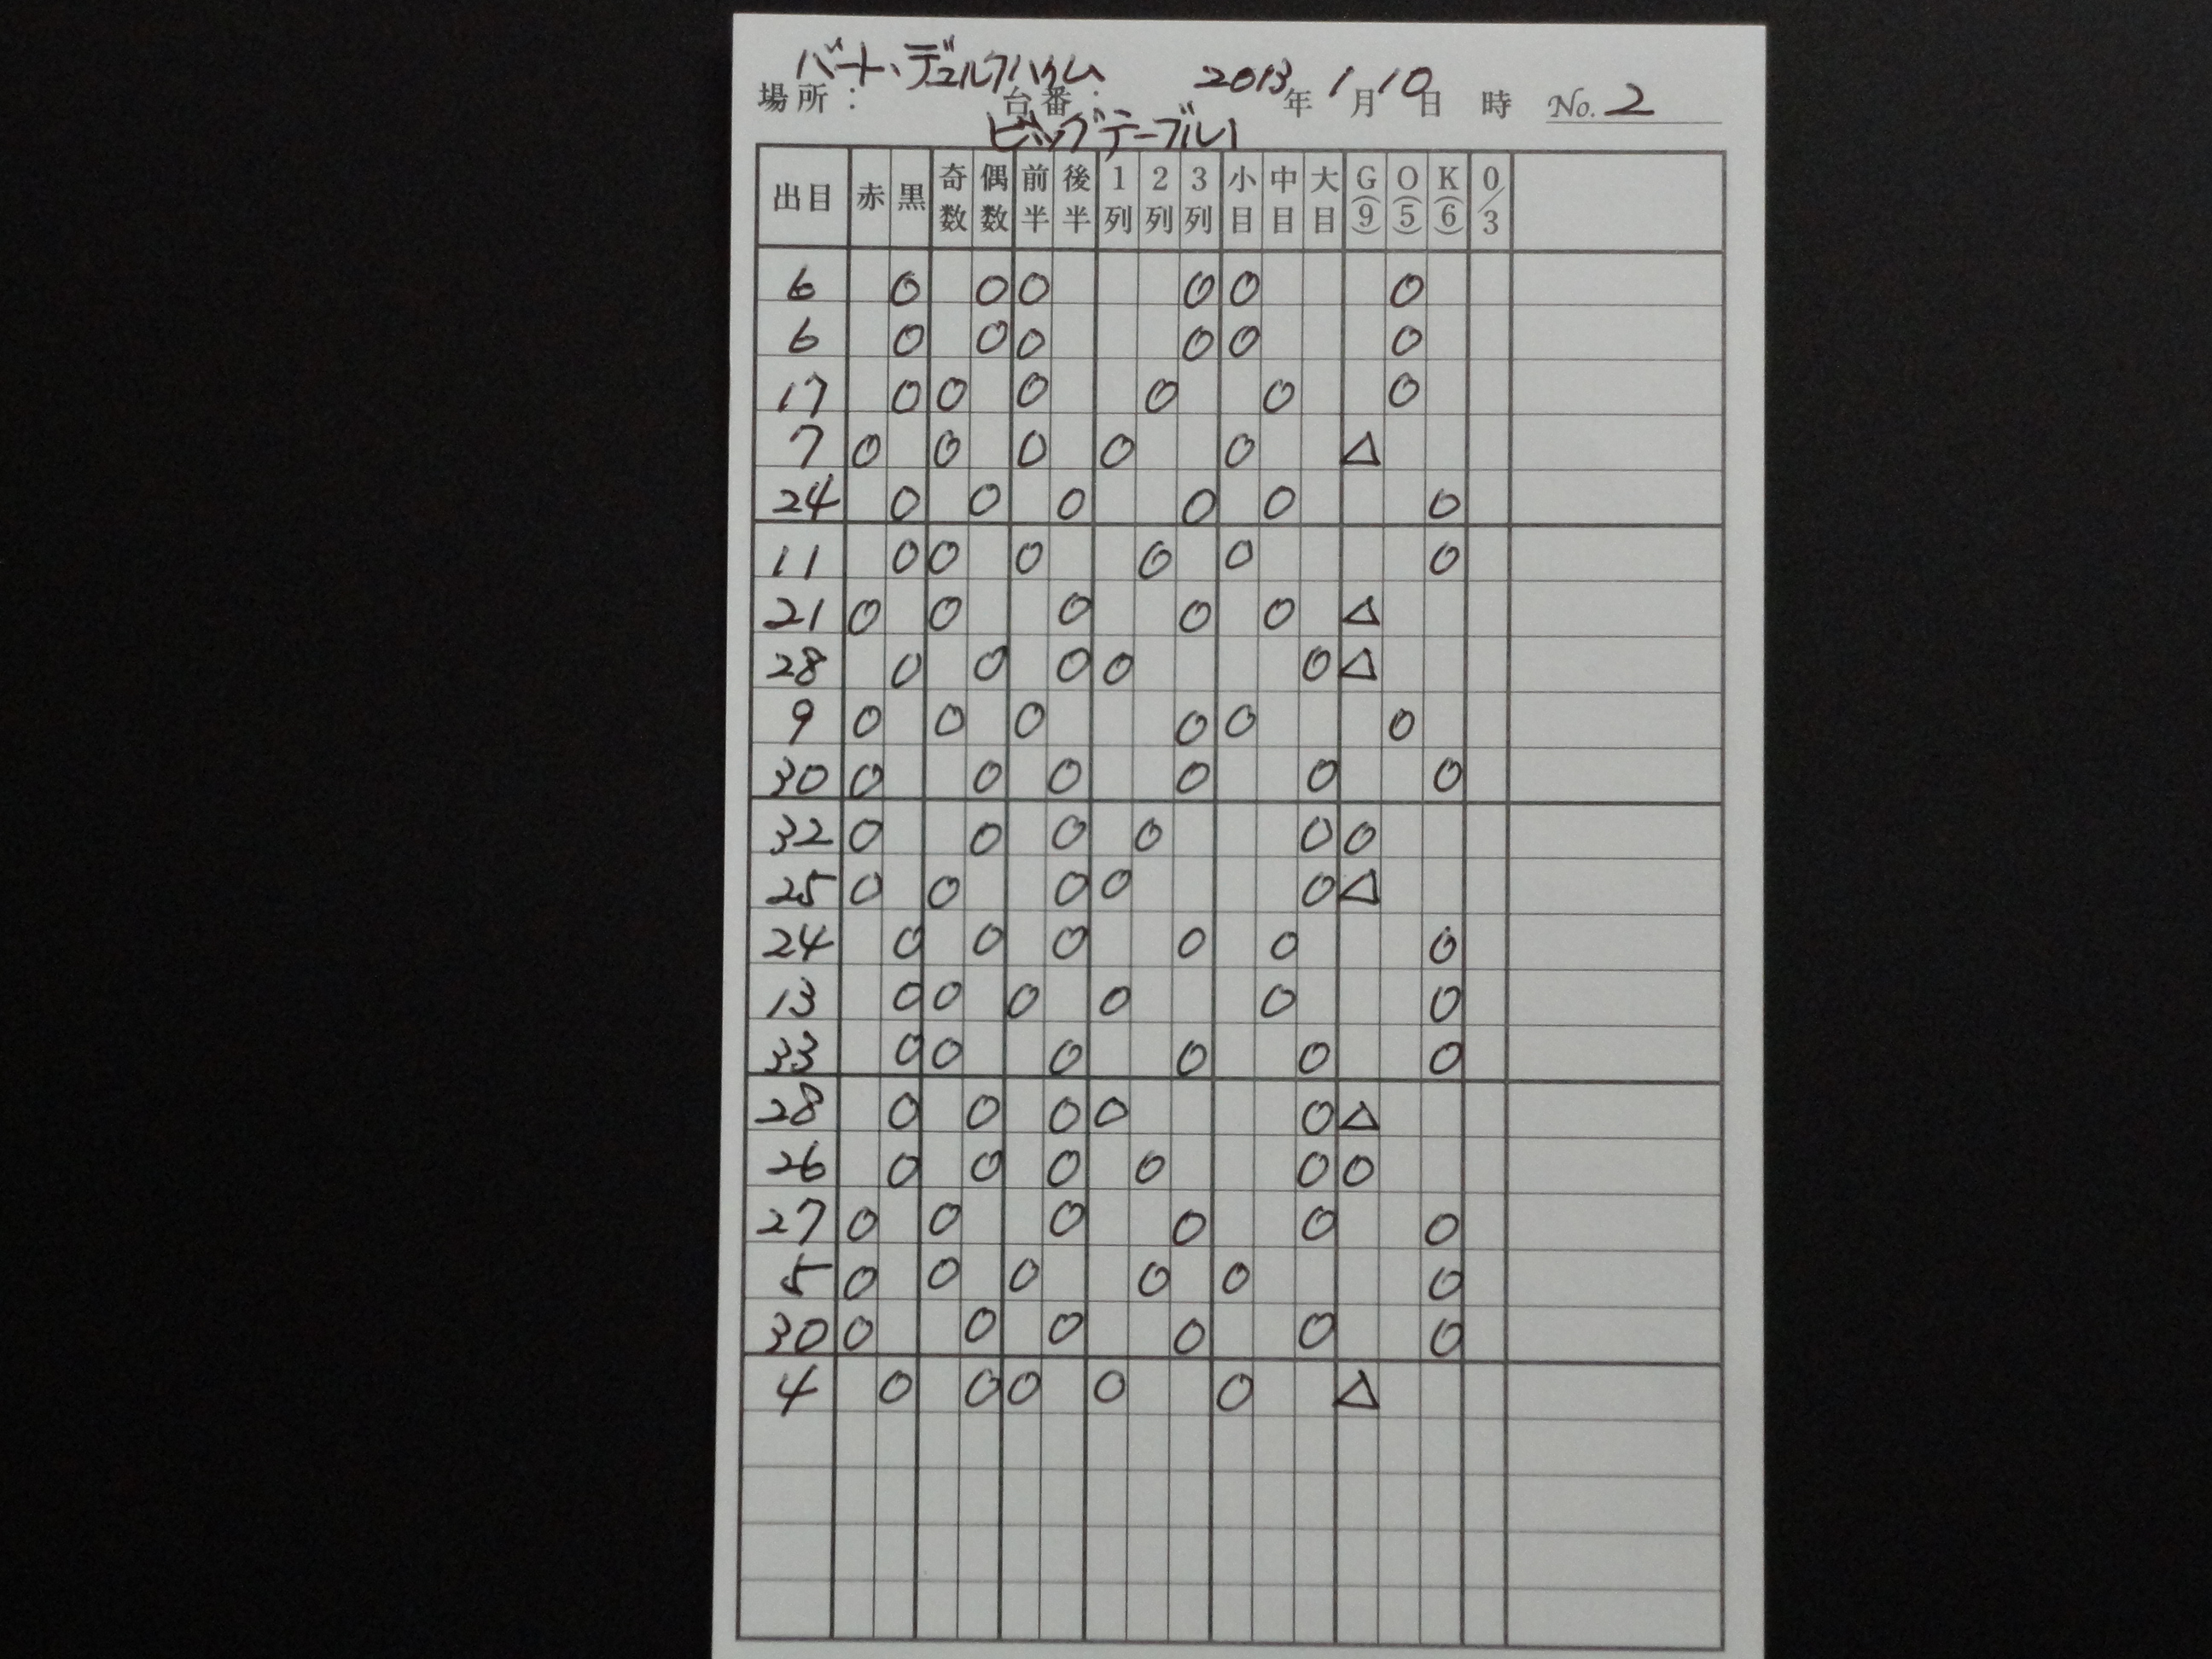 バート、デュルクハイム 2013 1 10
場所： 台番： 年 月 日 時 No. 2
ビッグテーブル1
出目 赤 黒 奇数 偶数 前半 後半 1列 2列 3列 小目 中目 大目 G(9) O(5) K(6) 0/3
6 O O O O O O
6 O O O O O O
17 O O O O O O
7 O O O O O △
24 O O O O O O
11 O O O O O O
21 O O O O O △
28 O O O O O △
9 O O O O O O
30 O O O O O O
32 O O O O O O
25 O O O O O △
24 O O O O O O
13 O O O O O O
33 O O O O O O
28 O O O O O △
26 O O O O O O
27 O O O O O O
5 O O O O O O
30 O O O O O O
4 O O O O O △